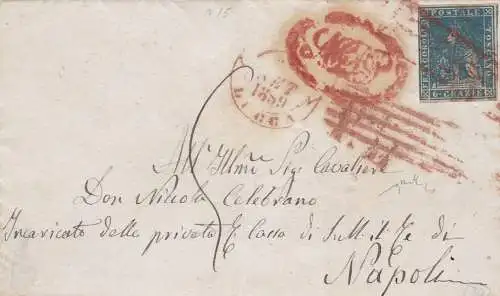 n 15
FRANCOBOLLO POSTALE TOSCANO
6 CRAZIE
SET
1859
LUCCA
P.D.
All' Illmo Sigr Cavaliere
Don Nicola Celebrano
Incaricato della privata R Cassa di S. M. il Re di
Napoli